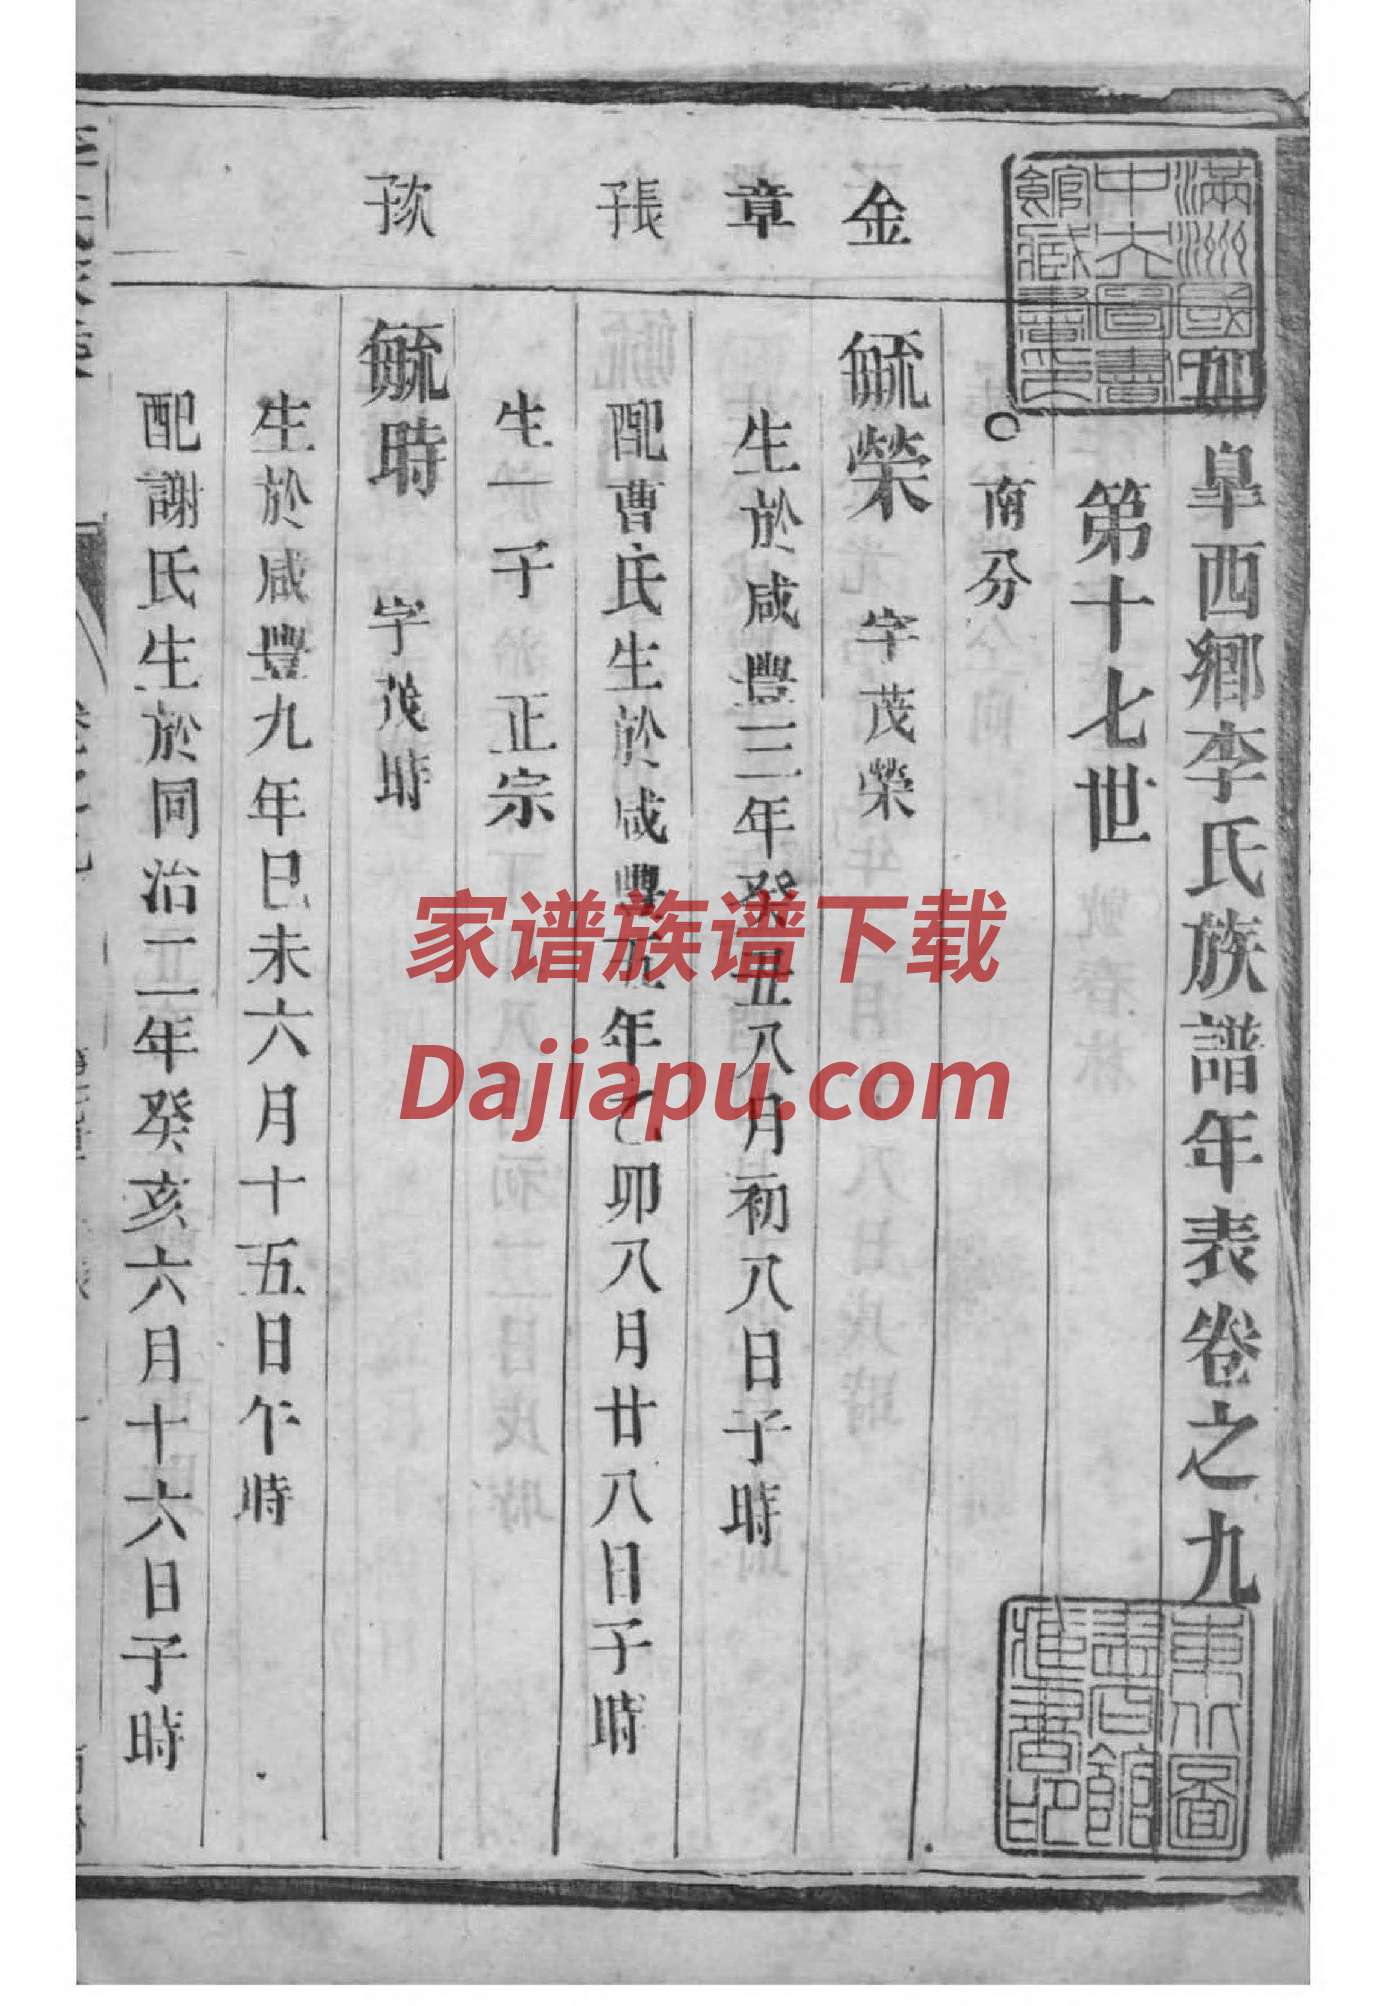 如皐西鄉李氏族譜年表卷之九
第十七世
○南分
金
毓榮 字茂榮
章
生於咸豐三年癸丑八月初八日子時
張
配曹氏生於咸豐五年乙卯八月廿八日子時
生一子 正宗
毓時 字茂時
生於咸豐九年巳未六月十五日午時
配謝氏生於同治二年癸亥六月十六日子時
滿洲國立
中央圖書
館藏書之印
東北圖
書館
藏書印
家谱族谱下载
Dajiapu.com